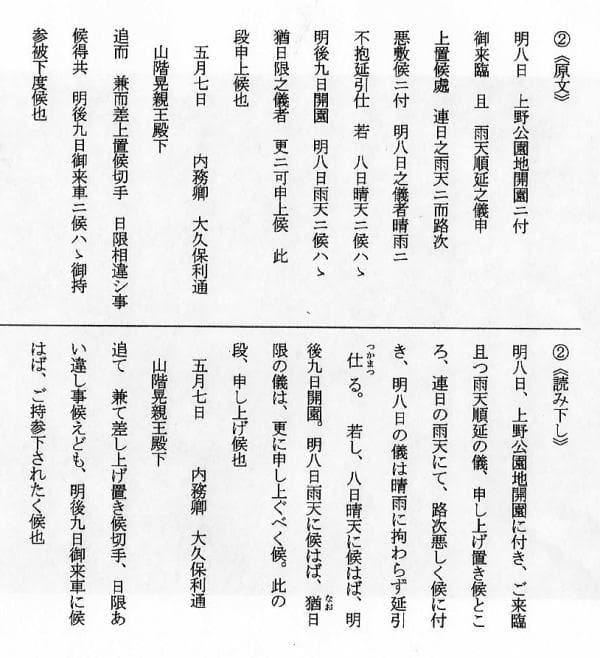 ②《原文》
明八日　上野公園地開園ニ付
御来臨　且　雨天順延之儀申
上置候處　連日之雨天ニ而路次
悪敷候ニ付　明八日之儀者晴雨ニ
不抱延引仕　若　八日晴天ニ候ハヽ
明後九日開園　明八日雨天ニ候ハヽ
猶日限之儀者　更ニ可申上候　此
段申上候也
五月七日　　内務卿　大久保利通
山階晃親王殿下
追而　兼而差上置候切手　日限相違シ事
候得共　明後九日御来車ニ候ハヽ御持
参被下度候也
②《読み下し》
明八日、上野公園地開園に付き、ご来臨
且つ雨天順延の儀、申し上げ置き候とこ
ろ、連日の雨天にて、路次悪しく候に付
き、明八日の儀は晴雨に拘わらず延引
つかまつ
仕る。　若し、八日晴天に候はば、明
後九日開園。明八日雨天に候はば、猶日
なお
限の儀は、更に申し上ぐべく候。此の
段、申し上げ候也
五月七日　　内務卿　大久保利通
山階晃親王殿下
追て　兼て差し上げ置き候切手、日限あ
い違し事候えども、明後九日御来車に候
はば、ご持参下されたく候也